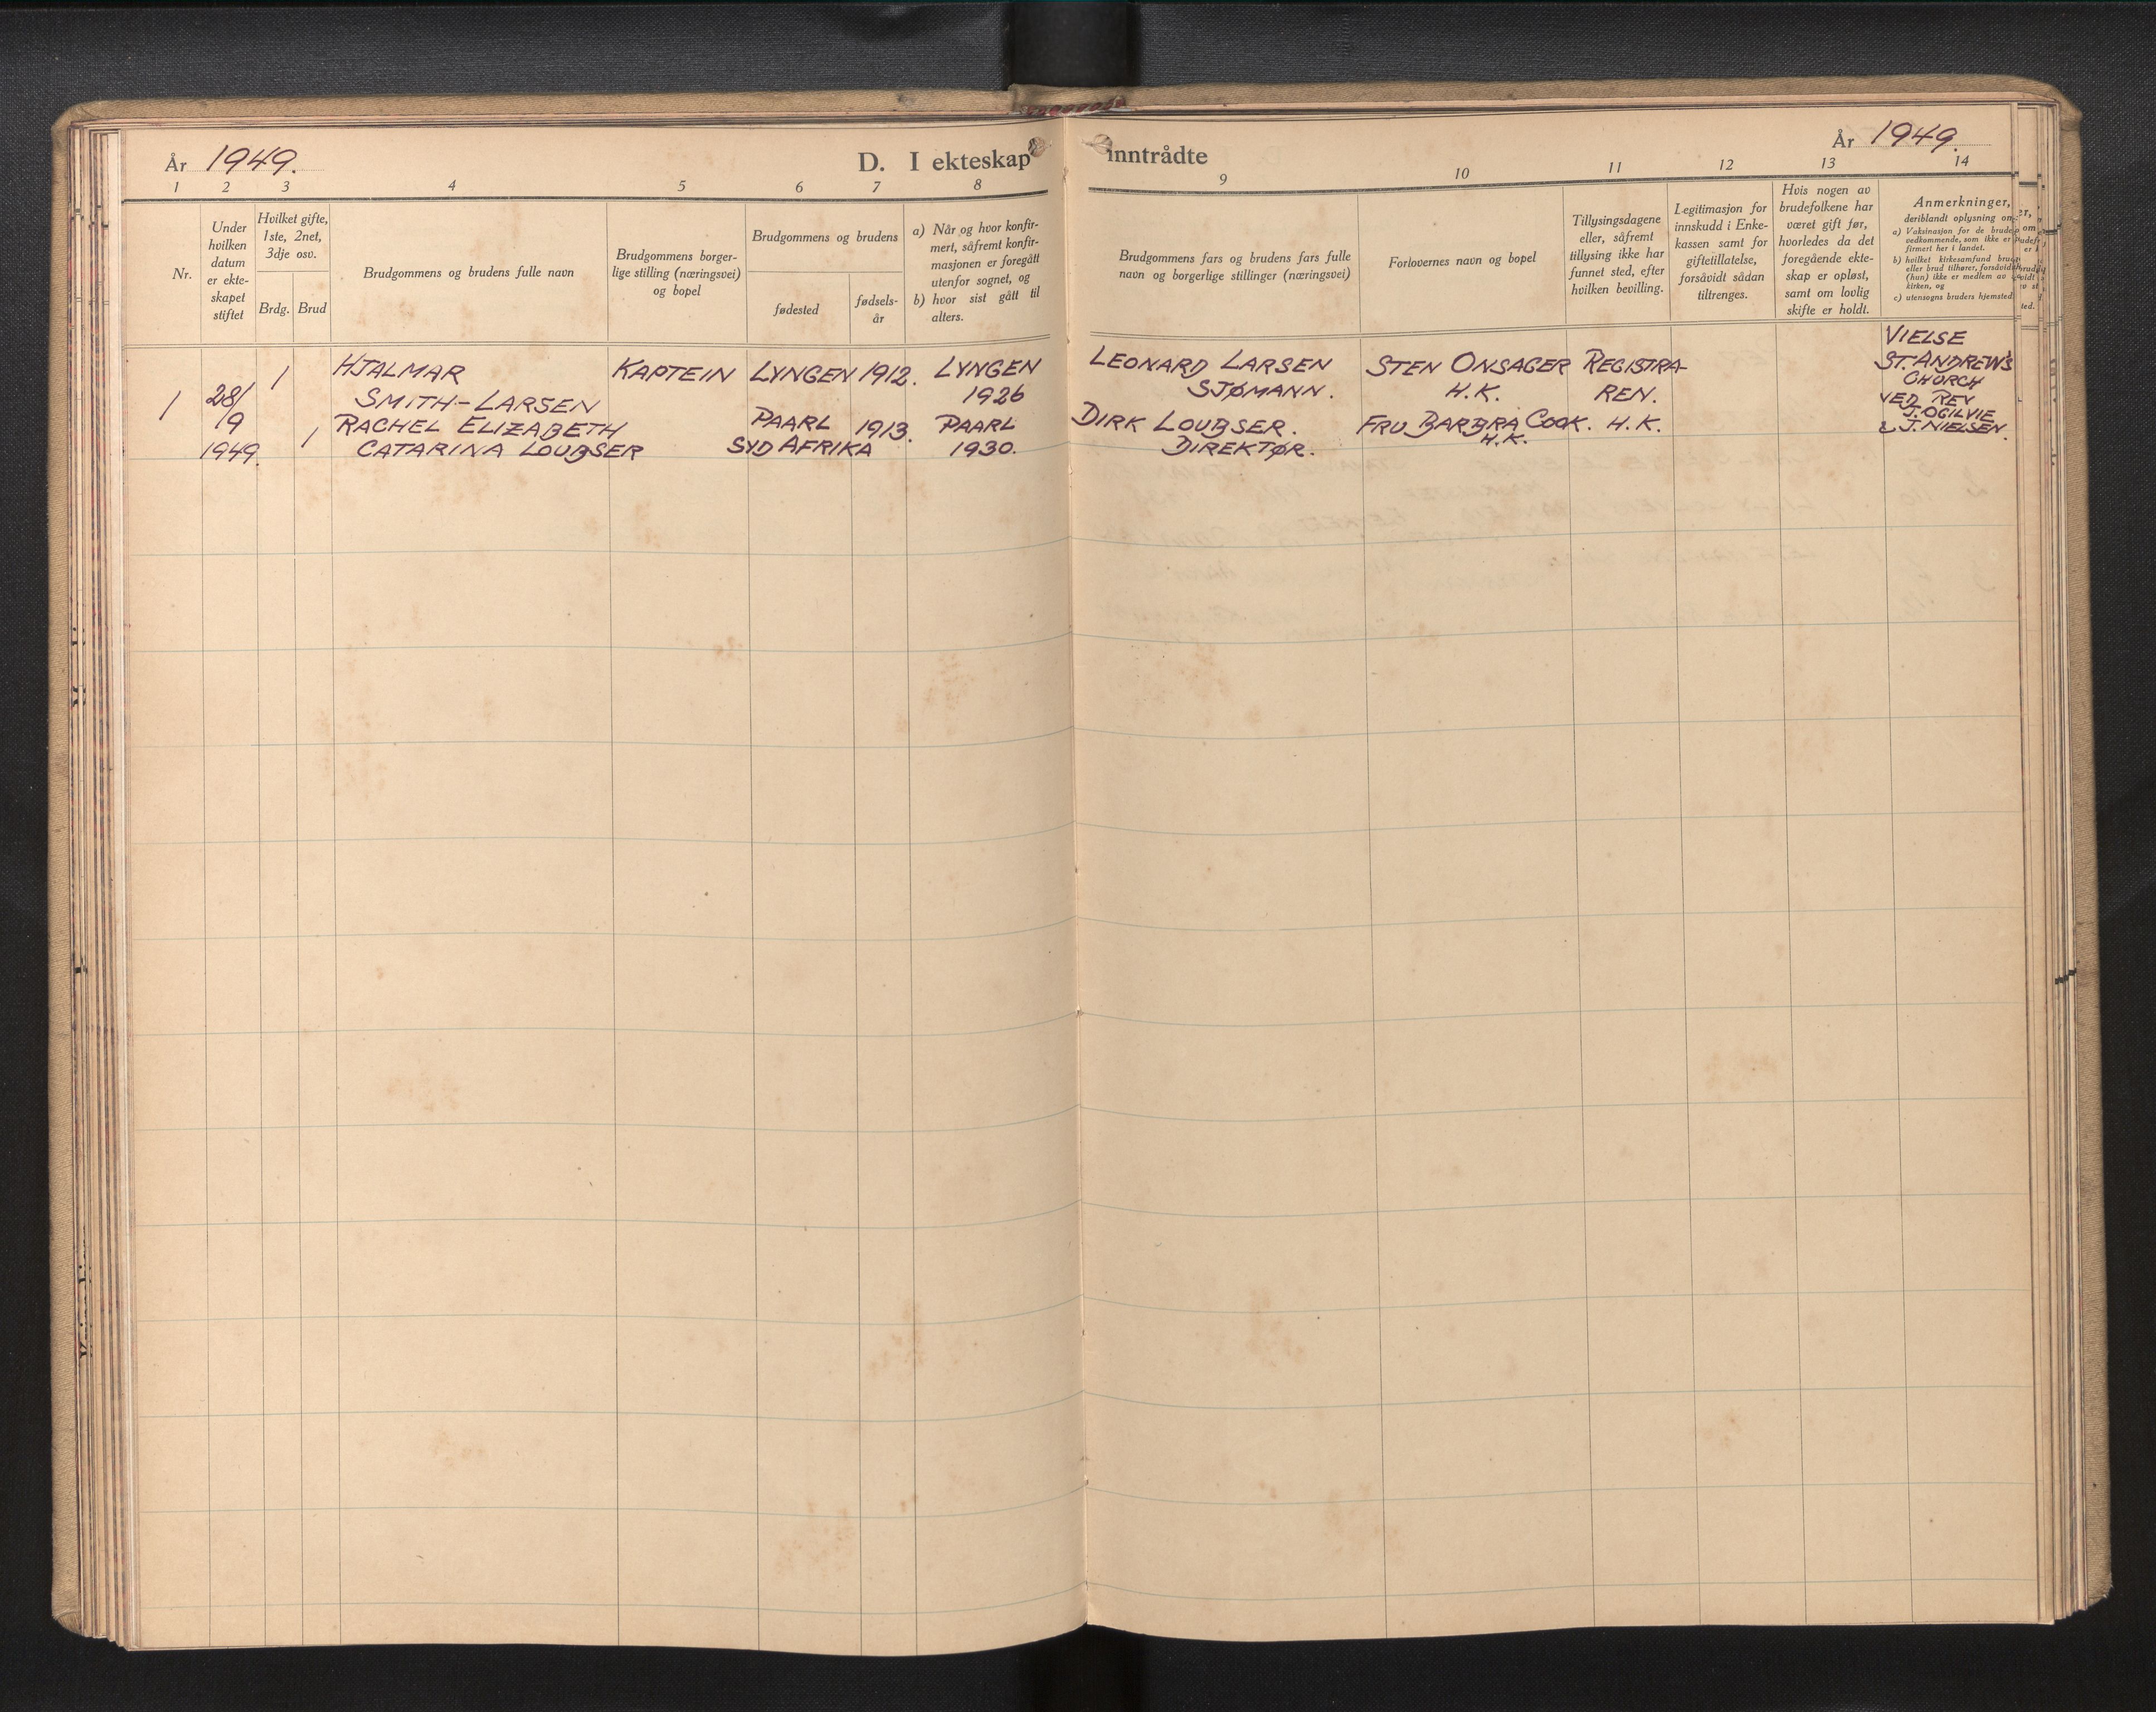 År 1949.
D. I ekteskap
1 2 3 4 5 6 7 8
Nr.
Under
hvilken
datum
er ekte-
skapet
stiftet
Hvilket gifte,
1ste, 2net,
3dje osv.
Brdg. Brud
Brudgommens og brudens fulle navn
Brudgommens borger-
lige stilling (næringsvei)
og bopel
Brudgommens og brudens
fødested
fødsels-
år
a) Når og hvor konfir-
mert, såfremt konfir-
masjonen er foregått
utenfor sognet, og
b) hvor sist gått til
alters.
1
28/
9
1949.
1
1
HJALMAR
SMITH-LARSEN
RACHEL ELIZABETH
CATARINA LOUBSER
KAPTEIN
LYNGEN 1912.
PAARL 1913.
SYD AFRIKA
LYNGEN
1926
PAARL
1930.
inntrådte
År 1949.
9 10 11 12 13 14
Brudgommens fars og brudens fars fulle
navn og borgerlige stillinger (næringsvei)
Forlovernes navn og bopel
Tillysingsdagene
eller, såfremt
tillysing ikke har
funnet sted, efter
hvilken bevilling.
Legitimasjon for
innskudd i Enke-
kassen samt for
giftetillatelse,
forsåvidt sådan
tiltrenges.
Hvis nogen av
brudefolkene har
været gift før,
hvorledes da det
foregående ekte-
skap er opløst,
samt om lovlig
skifte er holdt.
Anmerkninger,
deriblandt oplysning om
a) Vaksinasjon for de brude-
vedkommende, som ikke er
firmert her i landet.
b) hvilket kirkesamfund
eller brud tilhører, forsåvidt
(hun) ikke er medlem av
kirken, og
c) utensogns bruders hjemsted
LEONARD LARSEN
SJØMANN.
DIRK LOUBSER.
DIREKTØR.
STEN ONSAGER
H.K.
FRU BARBRA COOK.
H.K.
REGISTRA-
REN.
H.K.
VIELSE
ST. ANDREW'S
CHURCH
VED REV
J. OGILVIE
& J. NIELSEN.